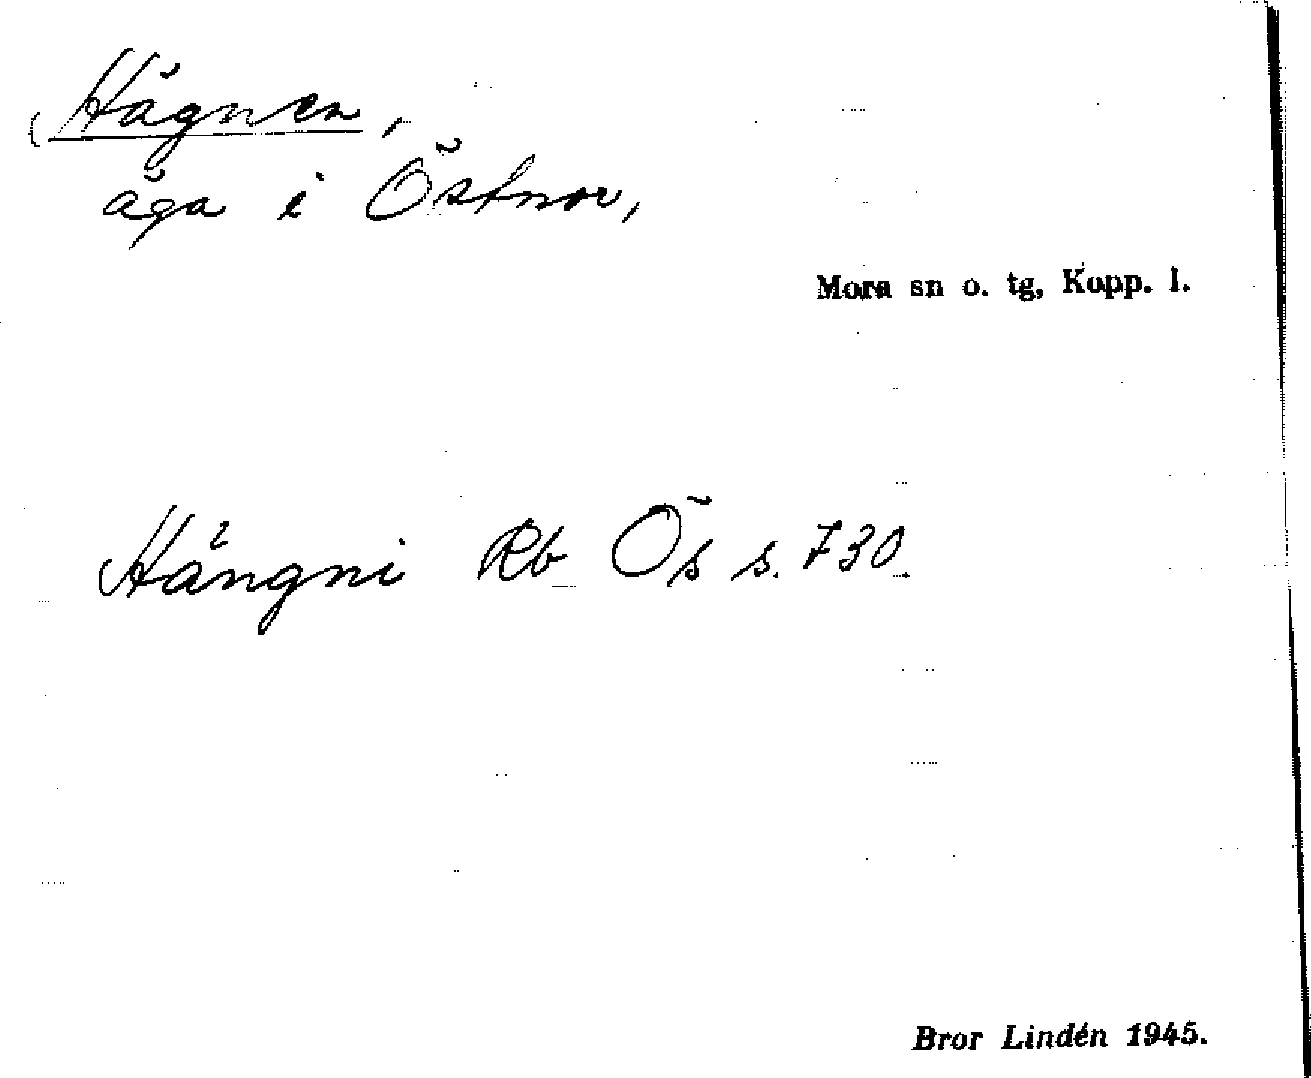 Hägnen,
äga i Östnor,
Mora sn o. tg, Kopp. l.
Hängni Rb Ös s. 730.
Bror Lindén 1945.